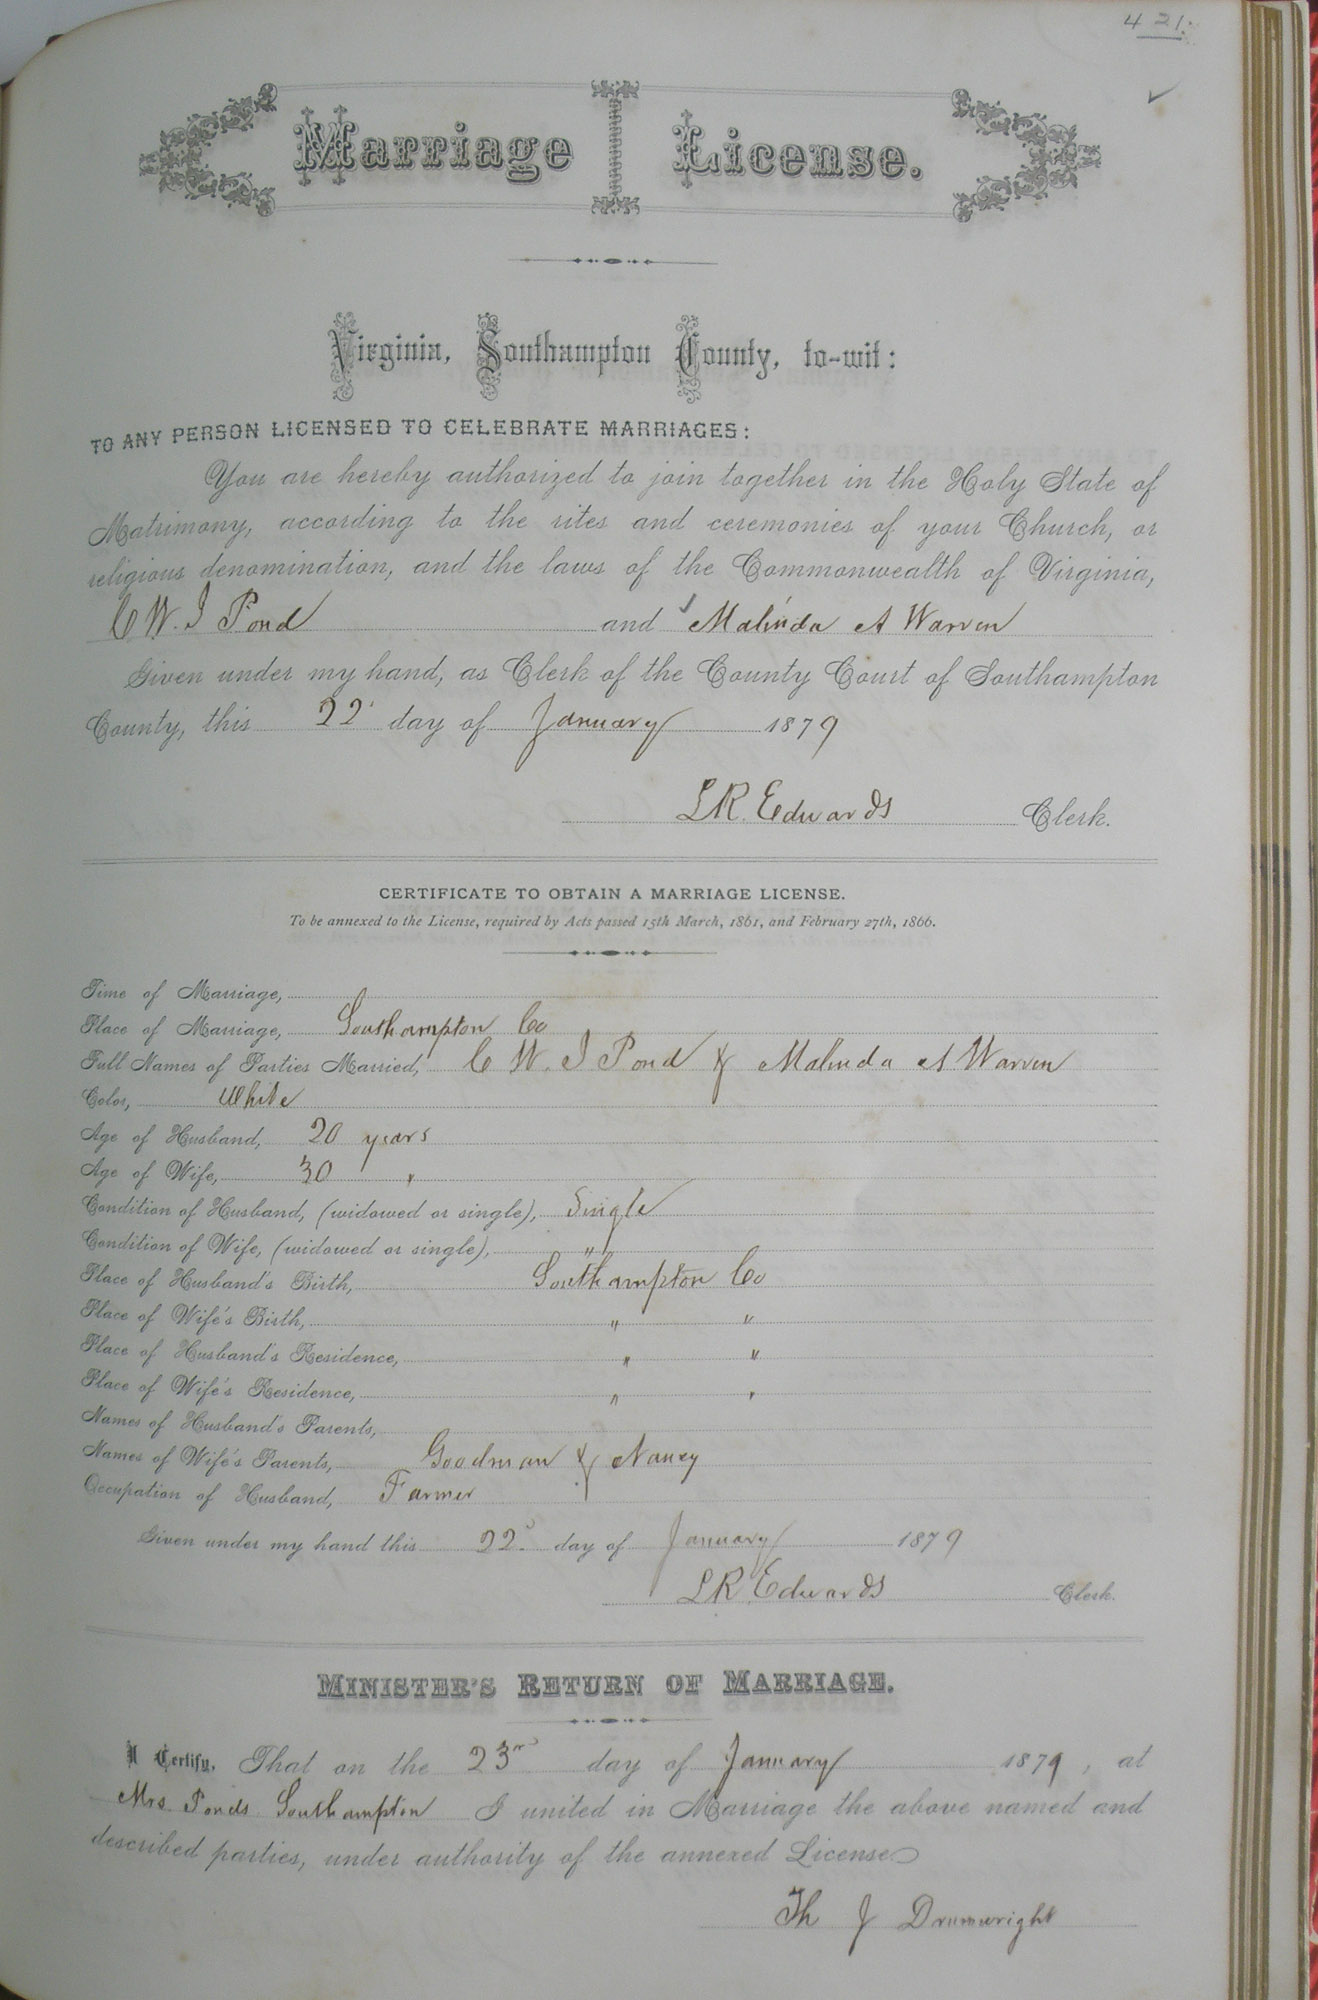 421.
Marriage License.
Virginia, Southampton County, to-wit:
TO ANY PERSON LICENSED TO CELEBRATE MARRIAGES:
You are hereby authorized to join together in the Holy State of
Matrimony, according to the rites and ceremonies of your Church, or
religious denomination, and the laws of the Commonwealth of Virginia,
C W. J Pond and Malinda A Warren
Given under my hand, as Clerk of the County Court of Southampton
County, this 22 day of January 1879
L R. Edwards Clerk.
CERTIFICATE TO OBTAIN A MARRIAGE LICENSE.
To be annexed to the License, required by Acts passed 15th March, 1861, and February 27th, 1866.
Time of Marriage,
Place of Marriage, Southampton Co
Full Names of Parties Married, C W. J Pond & Malinda A Warren
Color, White
Age of Husband, 20 years
Age of Wife, 30 "
Condition of Husband, (widowed or single), Single
Condition of Wife, (widowed or single), "
Place of Husband's Birth, Southampton Co
Place of Wife's Birth, " "
Place of Husband's Residence, " "
Place of Wife's Residence, " "
Names of Husband's Parents,
Names of Wife's Parents, Goodman & Nancy
Occupation of Husband, Farmer
Given under my hand this 22 day of January 1879
L R. Edwards Clerk.
MINISTER'S RETURN OF MARRIAGE.
I Certify, That on the 23rd day of January 1879, at
Mrs. Ponds Southampton I united in Marriage the above named and
described parties, under authority of the annexed License
Th J Drumwright